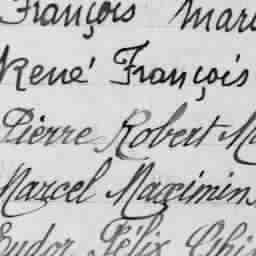 François Mari
René François
Pierre Robert Ma
Marcel Maximin
Eudor Félix Ghi